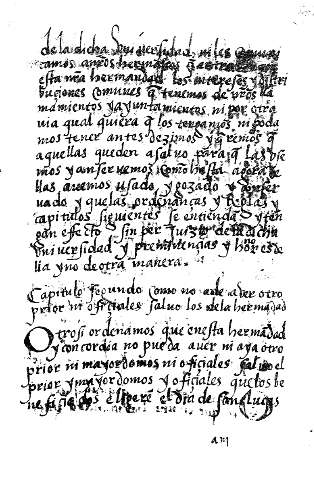 de la dicha universidad ni les comuni
camos a nros hermanos q
esta nra hermandad los intereses y distri
buciones comunes q tenemos de pros lla
mamientos y ayuntamientos ni por otra
via qual quiera q los tengamos ni poda
mos tener antes dezimos y qremos q
aquellas queden a salvo para q las use
mos y conservemos como hasta agora
las avemos usado y gozado y conser
vado y q las ordenanças y Reglas y
capitulos siguientes se entienda y ten
gan efecto sin per juizio de la dicha
universidad y preminencias y honores de
lla y no de otra manera.
Capitulo segundo como no a de aver otro
prior ni oficiales salvo los de la hermādad
Otrosi ordenamos que en esta hermādad
y concordia no pueda aver ni aya otro
prior ni mayordomos ni oficiales salvo el
prior y mayordomos y oficiales que los be
neficiados el dia de san lucas
a iij